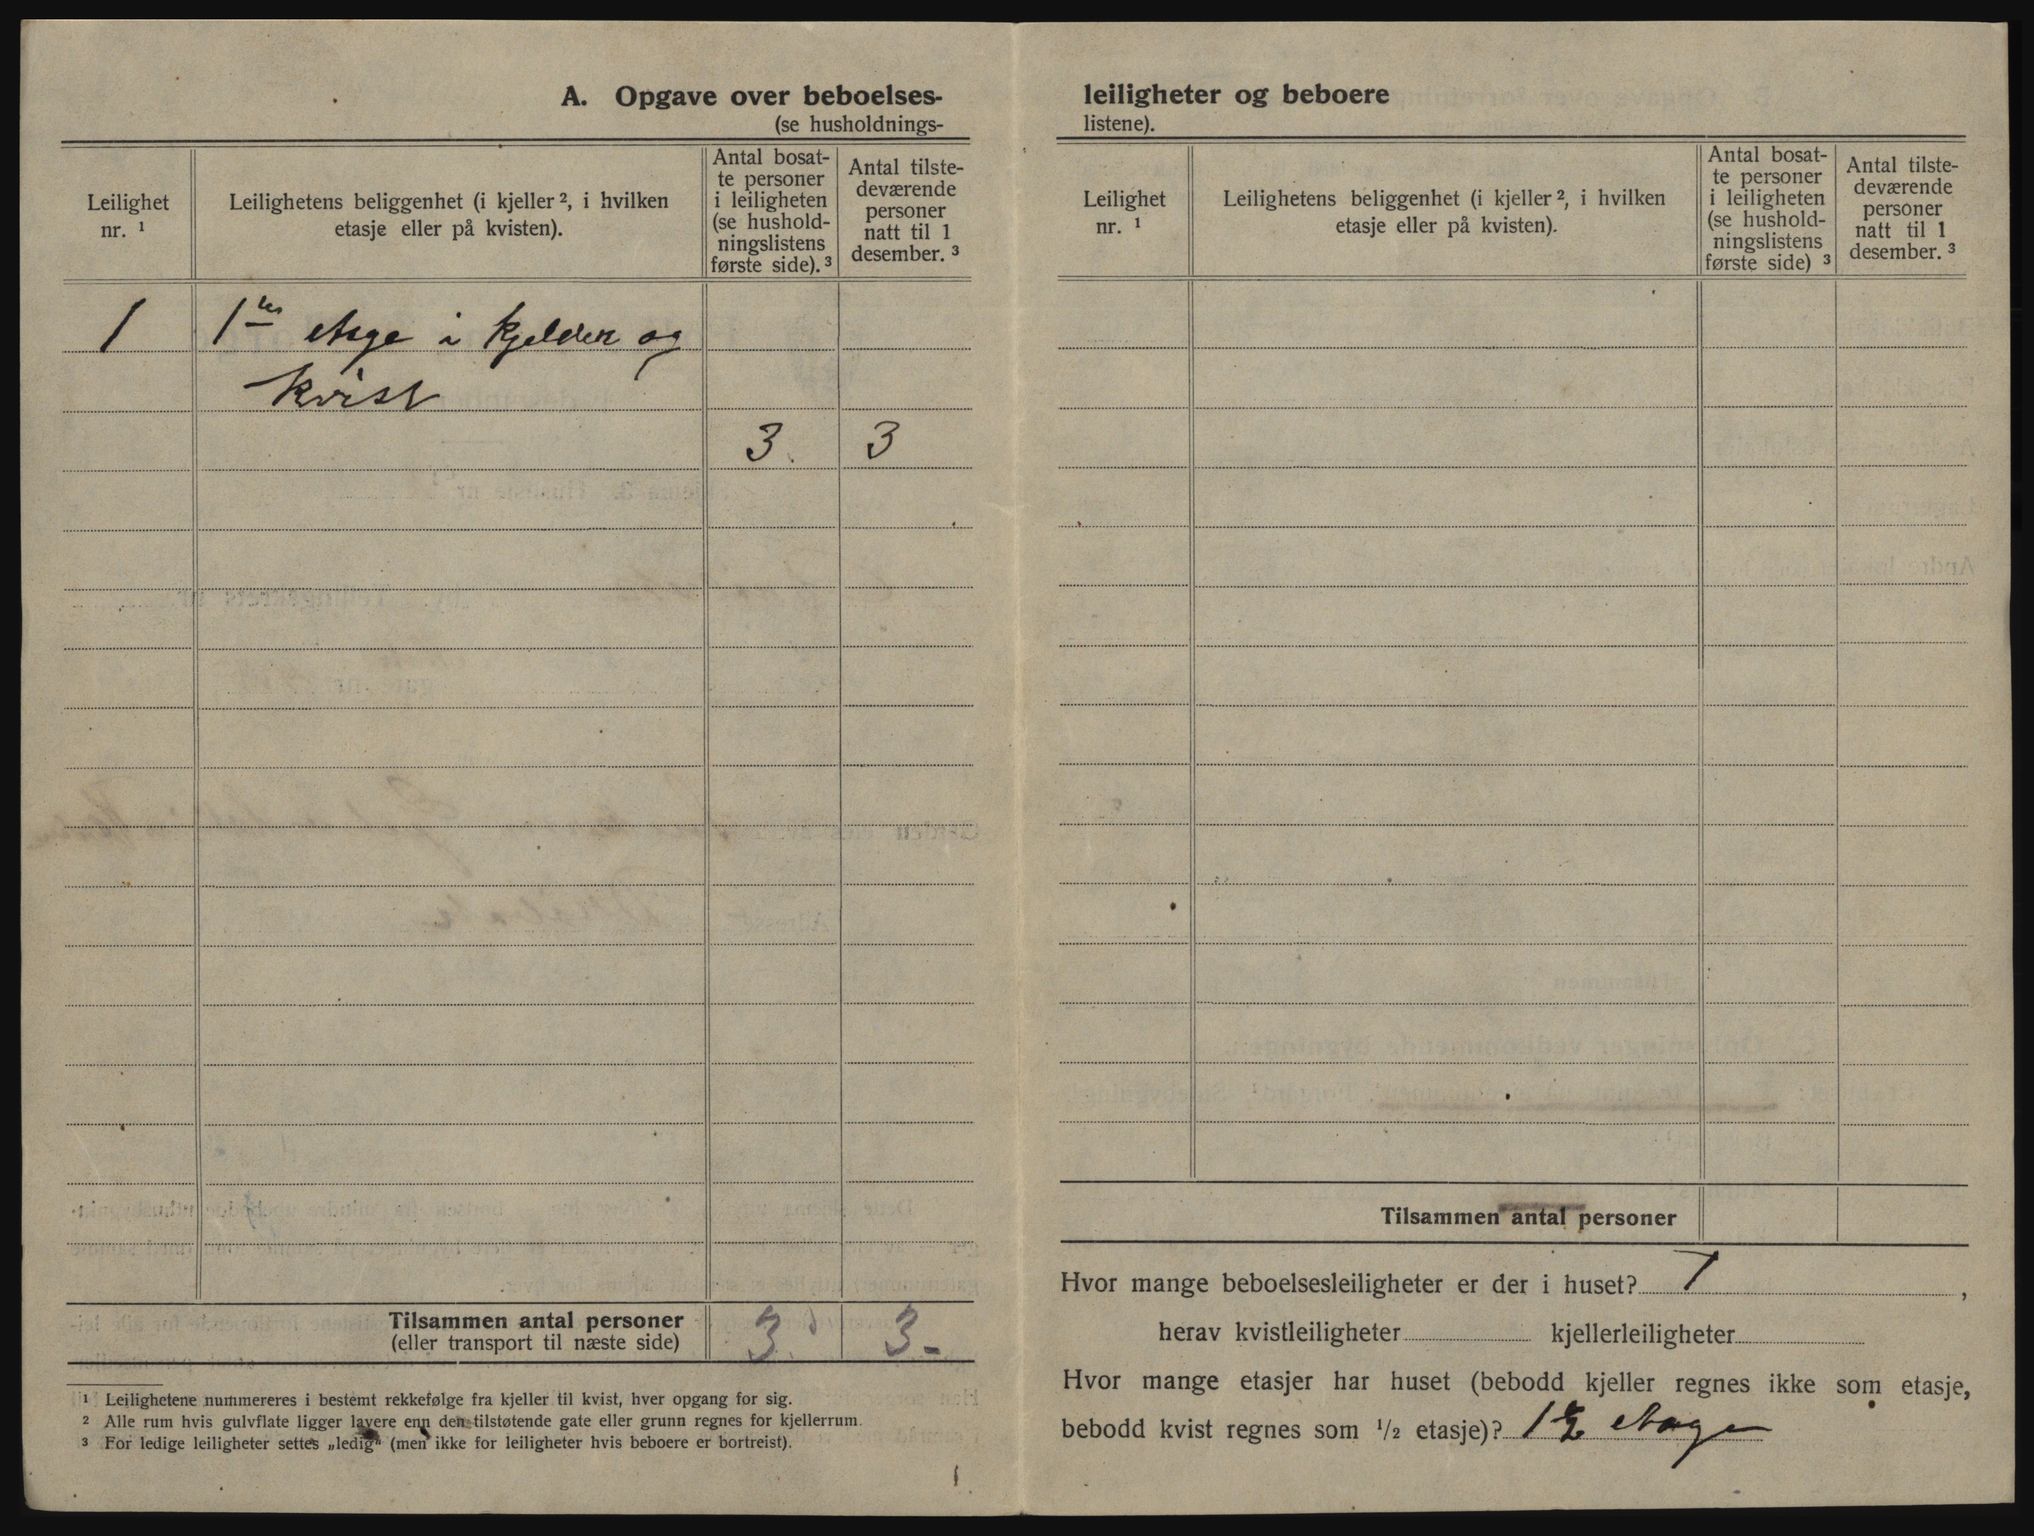 A. Opgave over beboelses-
(se husholdnings-
Leilighet nr. ¹
Leilighetens beliggenhet (i kjeller ², i hvilken
etasje eller på kvisten).
Antal bosat-
te personer
i leiligheten
(se hushold-
ningslistens
første side). ³
Antal tilste-
deværende
personer
natt til 1
desember. ³
1 1ste etage i kjelder og
kvist
3. 3
Tilsammen antal personer 3. 3-
(eller transport til næste side)
¹ Leilighetene nummereres i bestemt rekkefølge fra kjeller til kvist, hver opgang for sig.
² Alle rum hvis gulvflate ligger lavere enn den tilstøtende gate eller grunn regnes for kjellerrum.
³ For ledige leiligheter settes „ledig" (men ikke for leiligheter hvis beboere er bortreist).
leiligheter og beboere
listene).
Leilighet
nr. ¹
Leilighetens beliggenhet (i kjeller ², i hvilken
etasje eller på kvisten).
Antal bosat-
te personer
i leiligheten
(se hushold-
ningslistens
første side) ³
Antal tilste-
deværende
personer
natt til 1
desember. ³
Tilsammen antal personer
Hvor mange beboelsesleiligheter er der i huset? 1,
herav kvistleiligheter kjellerleiligheter
Hvor mange etasjer har huset (bebodd kjeller regnes ikke som etasje,
bebodd kvist regnes som ¹/₂ etasje)? 1½ etage